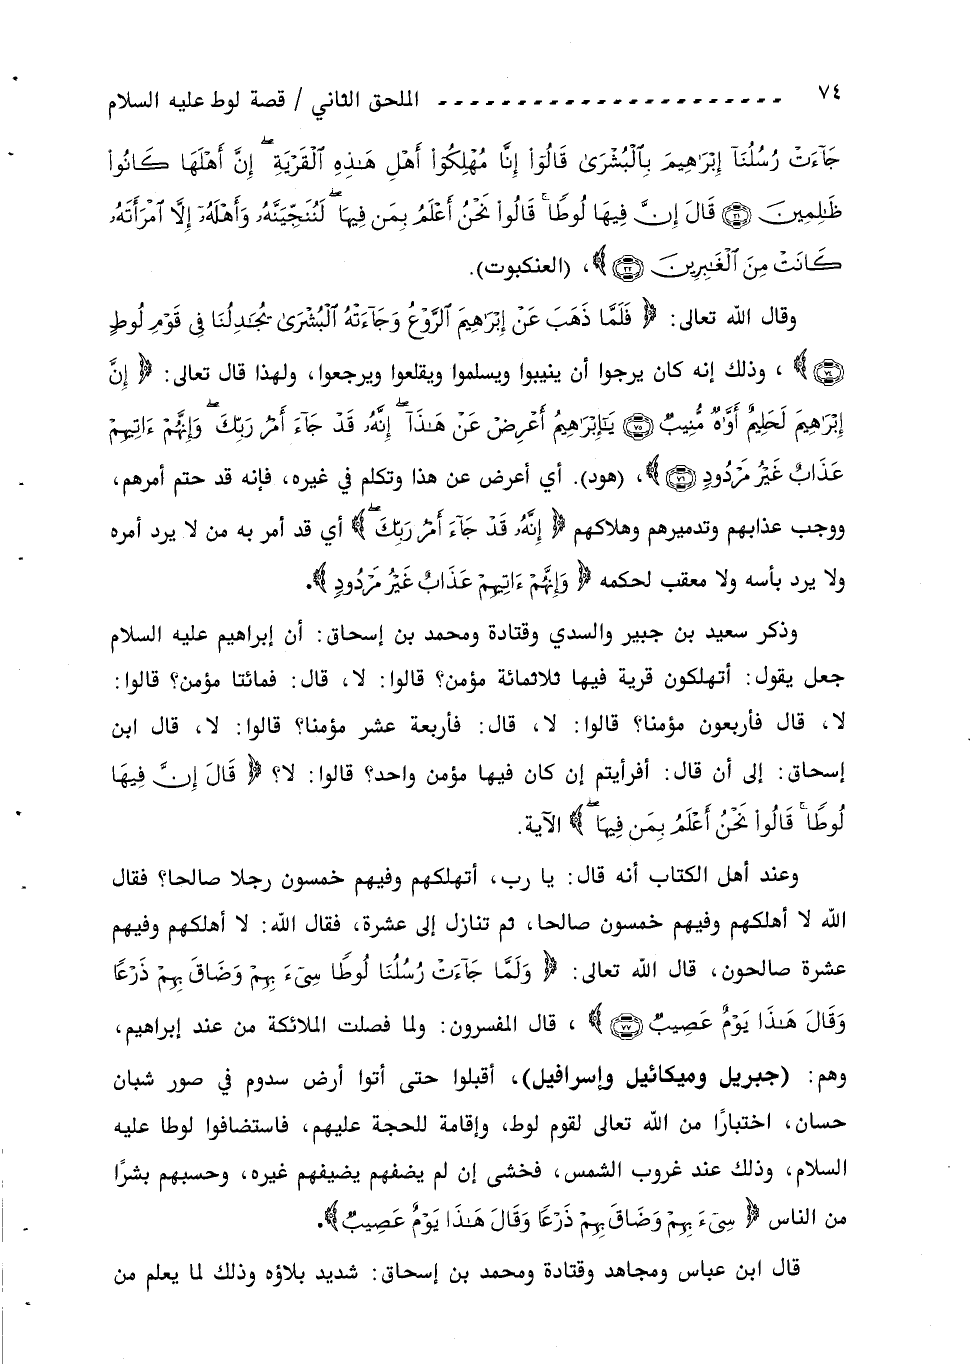 ٧٤ - - - - - - - - - - - - - - - - - - - - - - الملحق الثاني / قصة لوط عليه السلام
جَآءَتْ رُسُلُنَآ إِبْرَٰهِيمَ بِٱلْبُشْرَىٰ قَالُوٓا۟ إِنَّا مُهْلِكُوٓا۟ أَهْلِ هَـٰذِهِ ٱلْقَرْيَةِ ۖ إِنَّ أَهْلَهَا كَانُوا۟
ظَـٰلِمِينَ ﴿٣١﴾ قَالَ إِنَّ فِيهَا لُوطًا ۚ قَالُوا۟ نَحْنُ أَعْلَمُ بِمَن فِيهَا ۖ لَنُنَجِّيَنَّهُۥ وَأَهْلَهُۥٓ إِلَّا ٱمْرَأَتَهُۥ
كَانَتْ مِنَ ٱلْغَـٰبِرِينَ ﴿٣٢﴾ ﴾، (العنكبوت).
وقال الله تعالى: ﴿ فَلَمَّا ذَهَبَ عَنْ إِبْرَٰهِيمَ ٱلرَّوْعُ وَجَآءَتْهُ ٱلْبُشْرَىٰ يُجَـٰدِلُنَا فِى قَوْمِ لُوطٍ
﴿٧٤﴾ ﴾ ، وذلك إنه كان يرجوا أن ينيبوا ويسلموا ويقلعوا ويرجعوا، ولهذا قال تعالى: ﴿ إِنَّ
إِبْرَٰهِيمَ لَحَلِيمٌ أَوَّٰهٌ مُّنِيبٌ ﴿٧٥﴾ يَـٰٓإِبْرَٰهِيمُ أَعْرِضْ عَنْ هَـٰذَآ ۖ إِنَّهُۥ قَدْ جَآءَ أَمْرُ رَبِّكَ ۖ وَإِنَّهُمْ ءَاتِيهِمْ
عَذَابٌ غَيْرُ مَرْدُودٍ ﴿٧٦﴾ ﴾، (هود). أي أعرض عن هذا وتكلم في غيره، فإنه قد حتم أمرهم،
ووجب عذابهم وتدميرهم وهلاكهم ﴿ إِنَّهُۥ قَدْ جَآءَ أَمْرُ رَبِّكَ ۖ ﴾ أي قد أمر به من لا يرد أمره
ولا يرد بأسه ولا معقب لحكمه ﴿ وَإِنَّهُمْ ءَاتِيهِمْ عَذَابٌ غَيْرُ مَرْدُودٍ ﴾.
وذكر سعيد بن جبير والسدي وقتادة ومحمد بن إسحاق: أن إبراهيم عليه السلام
جعل يقول: أتهلكون قرية فيها ثلاثمائة مؤمن؟ قالوا: لا، قال: فمائتا مؤمن؟ قالوا:
لا، قال فأربعون مؤمنا؟ قالوا: لا، قال: فأربعة عشر مؤمنا؟ قالوا: لا، قال ابن
إسحاق: إلى أن قال: أفرأيتم إن كان فيها مؤمن واحد؟ قالوا: لا؟ ﴿ قَالَ إِنَّ فِيهَا
لُوطًا ۚ قَالُوا۟ نَحْنُ أَعْلَمُ بِمَن فِيهَا ۖ ﴾ الآية.
وعند أهل الكتاب أنه قال: يا رب، أتهلكهم وفيهم خمسون رجلا صالحا؟ فقال
الله لا أهلكهم وفيهم خمسون صالحا، ثم تنازل إلى عشرة، فقال الله: لا أهلكهم وفيهم
عشرة صالحون، قال الله تعالى: ﴿ وَلَمَّا جَآءَتْ رُسُلُنَا لُوطًا سِىٓءَ بِهِمْ وَضَاقَ بِهِمْ ذَرْعًا
وَقَالَ هَـٰذَا يَوْمٌ عَصِيبٌ ﴿٧٧﴾ ﴾ ، قال المفسرون: ولما فصلت الملائكة من عند إبراهيم،
وهم: (جبريل وميكائيل وإسرافيل)، أقبلوا حتى أتوا أرض سدوم في صور شبان
حسان، اختبارًا من الله تعالى لقوم لوط، وإقامة للحجة عليهم، فاستضافوا لوطا عليه
السلام، وذلك عند غروب الشمس، فخشى إن لم يضفهم يضيفهم غيره، وحسبهم بشرًا
من الناس ﴿ سِىٓءَ بِهِمْ وَضَاقَ بِهِمْ ذَرْعًا وَقَالَ هَـٰذَا يَوْمٌ عَصِيبٌ ﴾.
قال ابن عباس ومجاهد وقتادة ومحمد بن إسحاق: شديد بلاؤه وذلك لما يعلم من